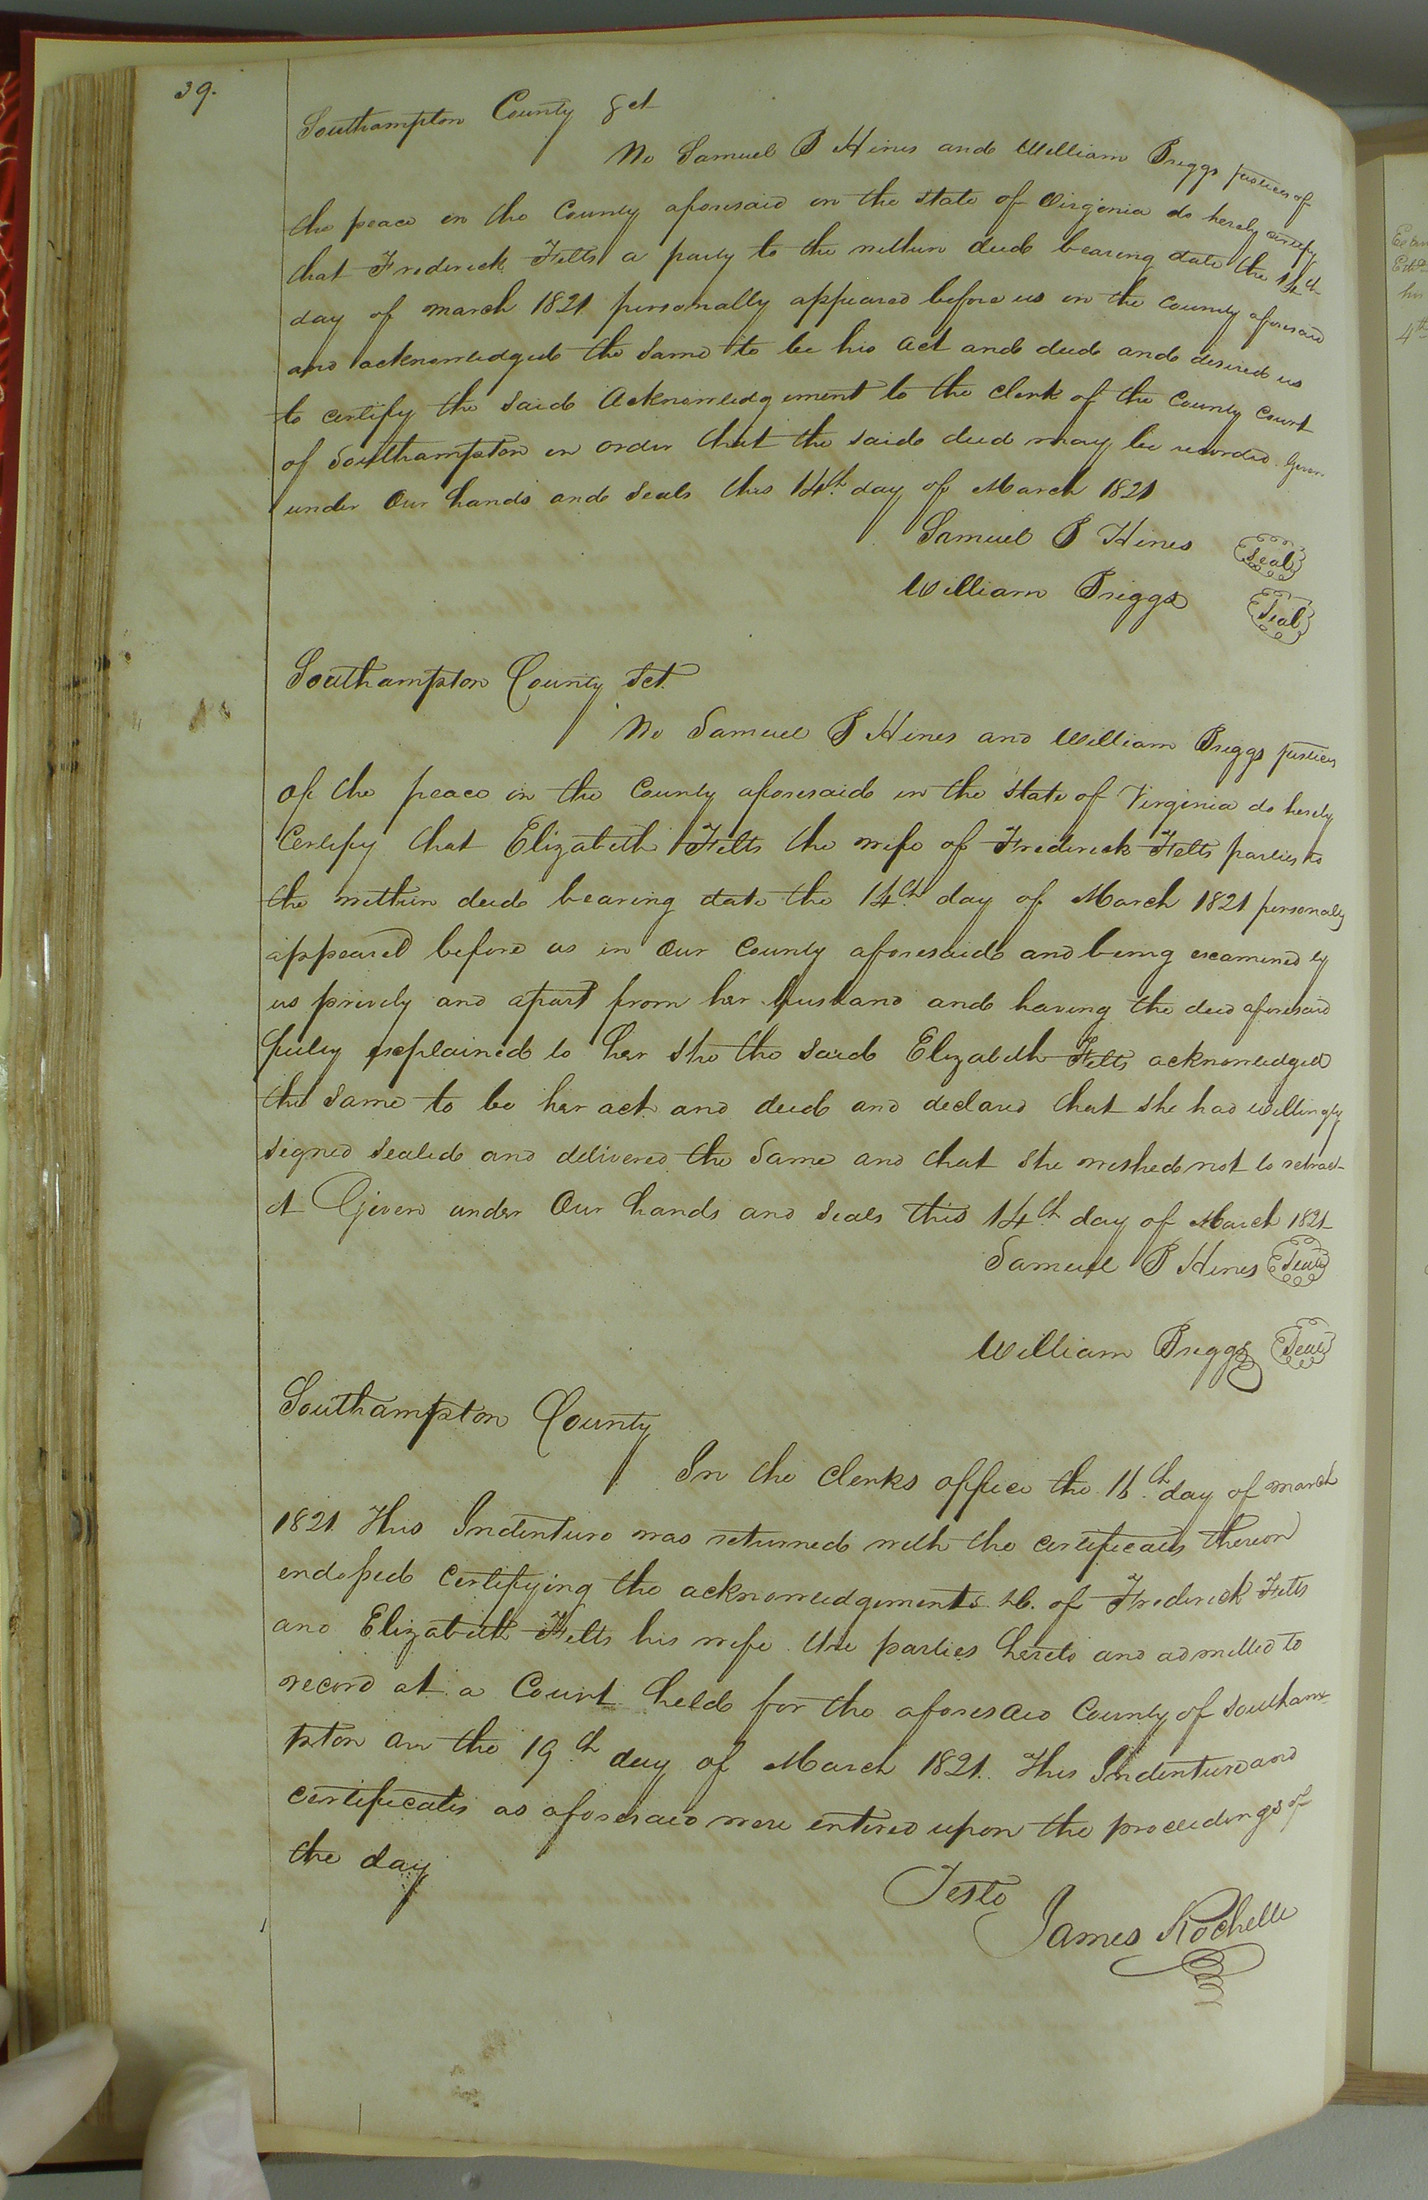 39.
Southampton County Sct
We Samuel B Hines and William Briggs justices of
the peace in the County aforesaid in the State of Virginia do hereby certify
that Frederick Felts a party to the within deed bearing date the 14th
day of march 1821 personally appeared before us in the County aforesaid
and acknowledged the same to be his act and deed and desired us
to certify the said Acknowledgement to the clerk of the County Court
of Southampton in order that the said deed may be recorded. Given
under Our hands and seals this 14th day of March 1821
Samuel B Hines Seal
William Briggs Seal
Southampton County Sct.
We Samuel B Hines and William Briggs justices
of the peace in the County aforesaid in the State of Virginia do hereby
Certify that Elizabeth Felts the wife of Frederick Felts parties to
the within deed bearing date the 14th day of March 1821 personaly
appeared before us in Our County aforesaid and being examined by
us privily and apart from her husband and having the deed aforesaid
fully explained to her she the said Elizabeth Felts acknowledged
the same to be her act and deed and declared that she had willingly
signed sealed and delivered the Same and that she wished not to retract
it Given under Our hands and seals this 14th day of March 1821
Samuel B Hines Seal
William Briggs Seal
Southampton County
In the clerks office the 16th day of march
1821 This Indenture was returned with the certificates thereon
endorsed certifying the acknowledgements &c. of Frederick Felts
and Elizabeth Felts his wife the parties hereto and admitted to
record at a Court held for the aforesaid County of Southam-
pton on the 19th day of March 1821. This Indenture and
certificates as aforesaid were entered upon the proceedings of
the day
Teste
James Rochelle
his
4th